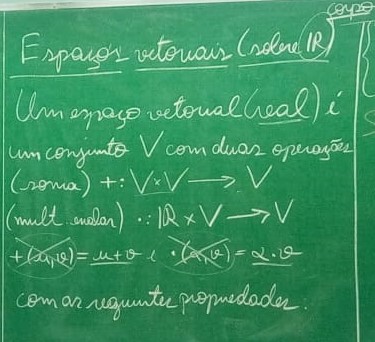 corpo
Espaços vetoriais (sobre IR)
Um espaço vetorial (real) é
um conjunto V com duas operações
(soma) +: V×V → V
(mult. escalar) ·: IR × V → V
+(u,v) = u+v e ·(α,v) = α·v
com as seguintes propriedades: